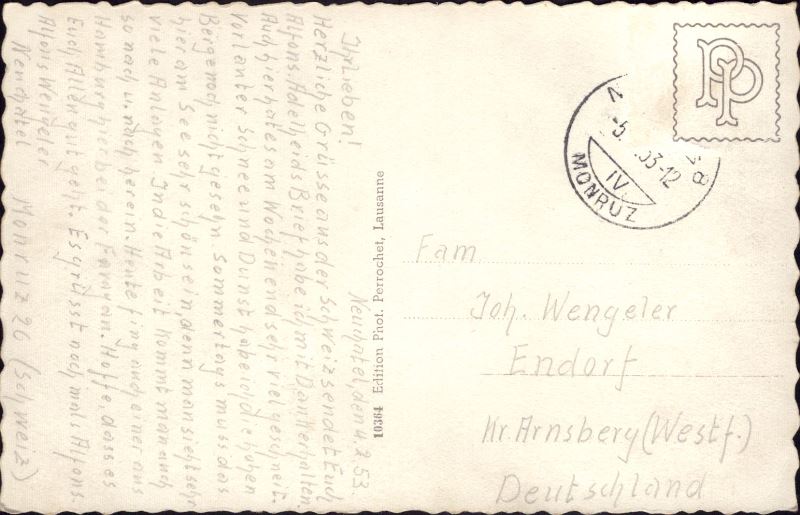 Neuchâtel, den 4.2.53.
Ihr lieben!
Herzliche Grüsse aus der Schweiz sendet Euch
Alfons. Adelheids Brief habe ich mit Dank erhalten.
Auch hier hat es am Wochenend sehr viel geschneit.
Vor lauter Schnee und Dunst habe ich die hohen
Berge noch nicht gesehn. Sommertags muss das
hier am See sehr schön sein, denn man sieht sehr
viele Anlagen. In die Arbeit kommt man auch
so nach u. nach herein. Heute fing auch einer aus
Hamburg hier bei der Favag an. Hoffe, dass es
Euch Allen gut geht. Es grüsst nochmals Alfons.
Alfons Wengeler
Neuchâtel Monruz 26 (Schweiz)
10364 Edition Phot. Perrochet, Lausanne
PP
-5. 53-12
IV
MONRUZ
Fam
Joh. Wengeler
Endorf
Kr. Arnsberg (Westf.)
Deutschland